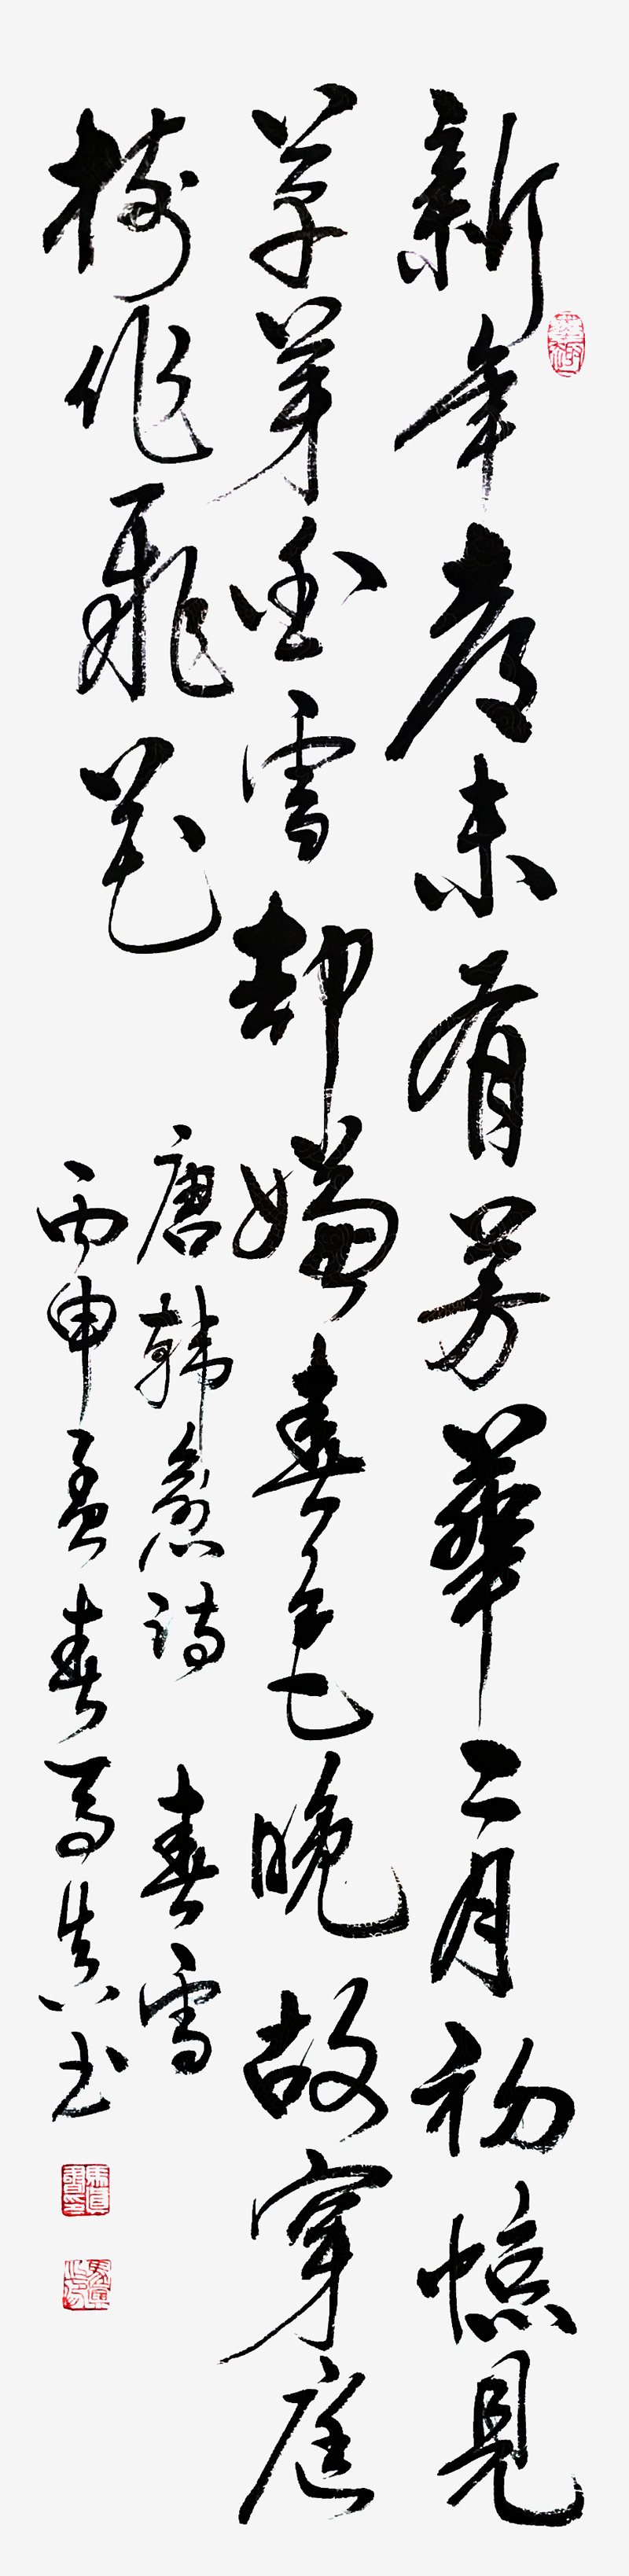 新年都未有芳華二月初惊見
草芽白雪却嫌春色晚故穿庭
樹作飛花
唐韩愈诗 春雪
丙申孟春马真书